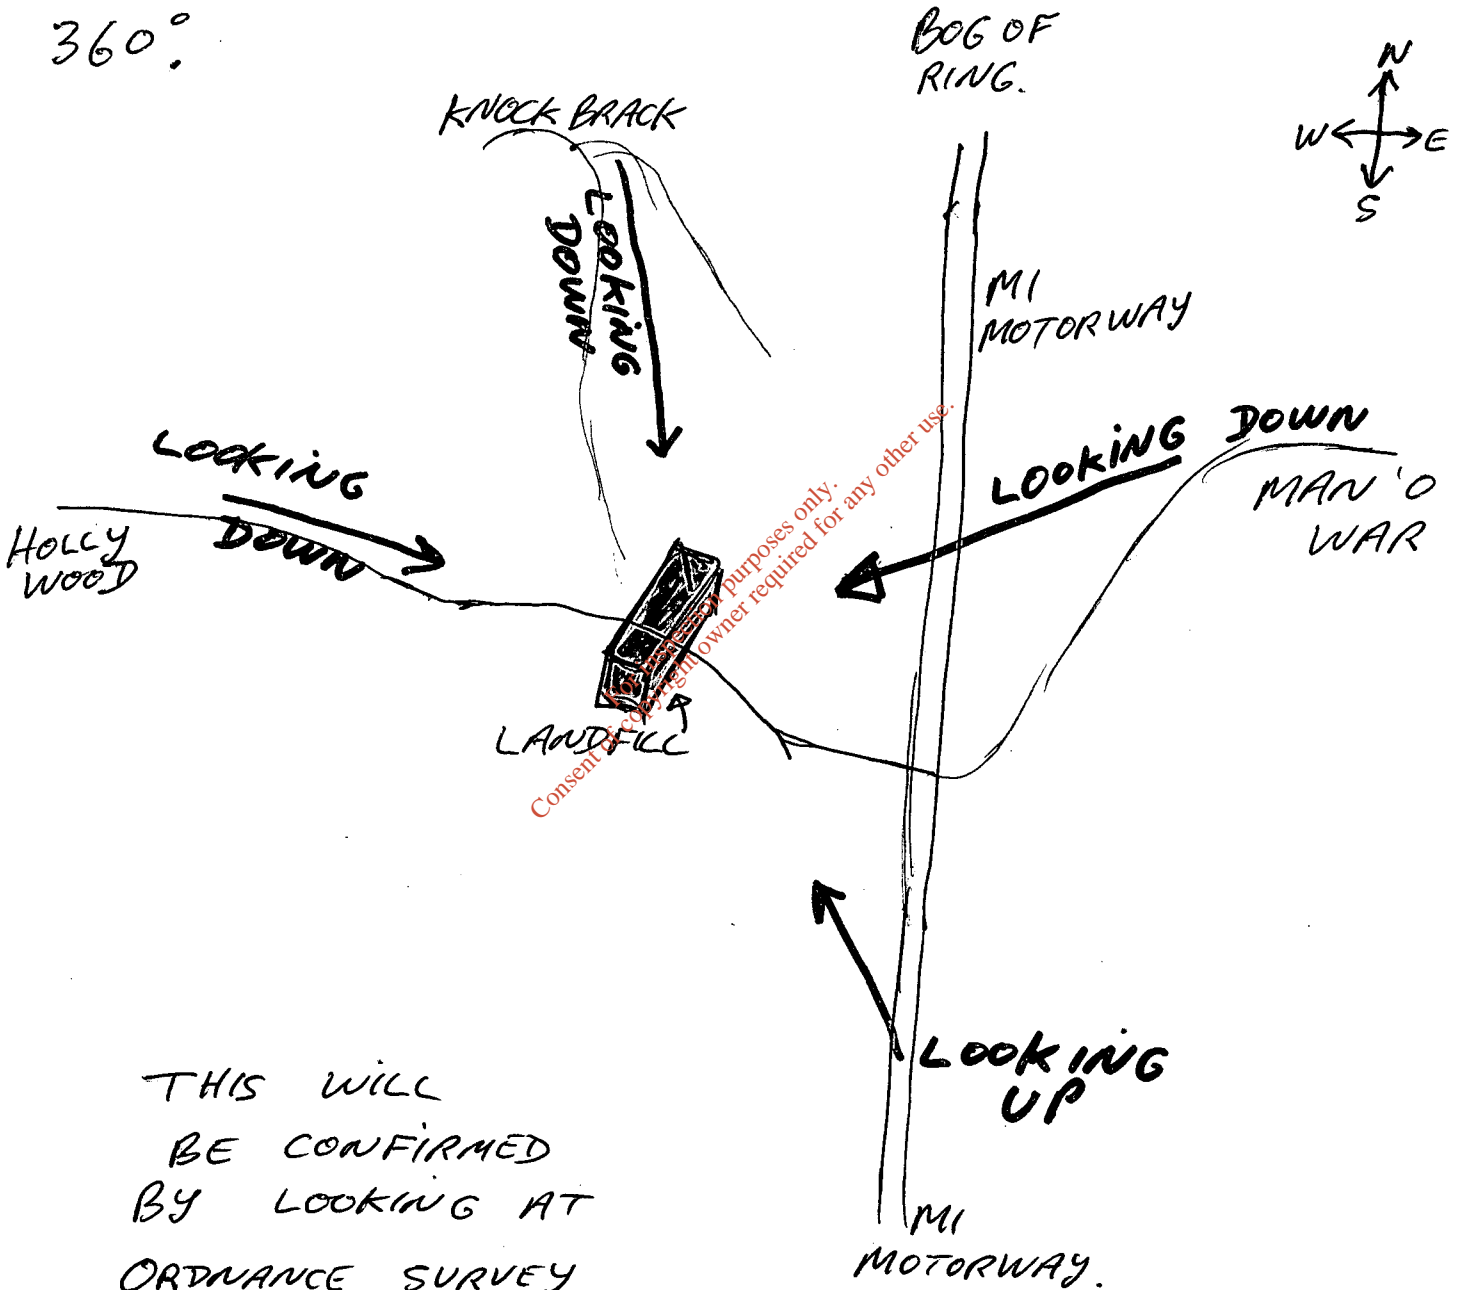 360°.
BOG OF
RING.
N
W E
S
KNOCKBRACK
LOOKING
DOWN
M1
MOTORWAY
LOOKING DOWN
MAN 'O
WAR
LOOKING
DOWN
HOLLY
WOOD
For inspection purposes only.
Consent of copyright owner required for any other use.
LANDFILL
LOOKING
UP
THIS WILL
BE CONFIRMED
BY LOOKING AT
ORDNANCE SURVEY
M1
MOTORWAY.